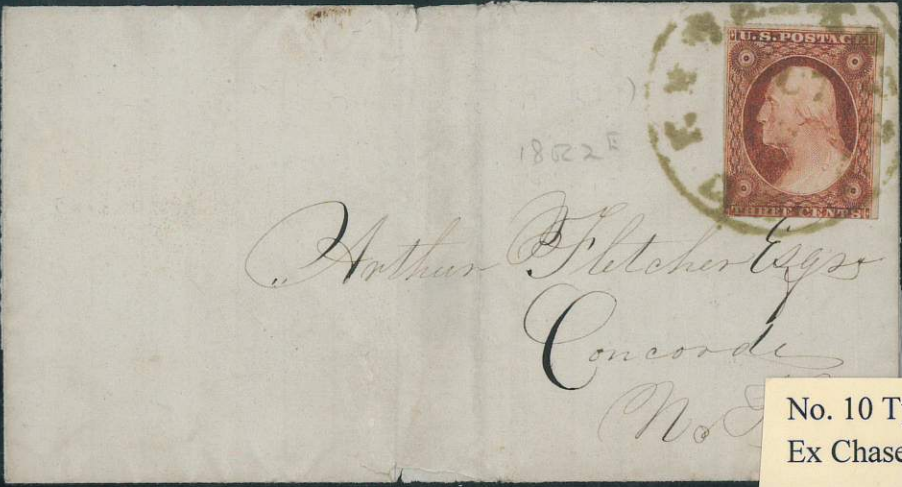 U.S. POSTAGE
THREE CENTS
Arthur Fletcher Esqr
Concord
N.
No. 10 T
Ex Chase